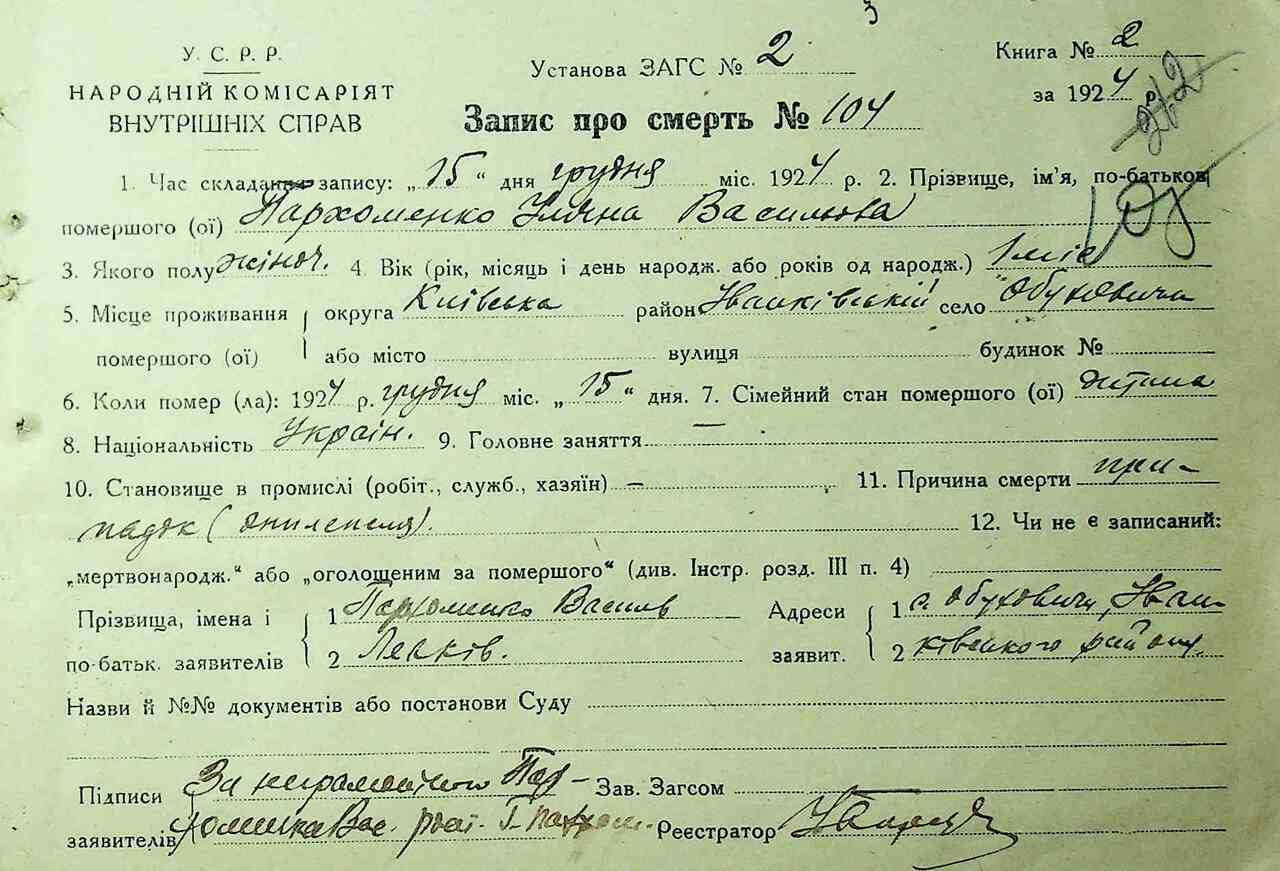 У. С. Р. Р.
НАРОДНІЙ КОМІСАРІЯТ
ВНУТРІШНІХ СПРАВ
Установа ЗАГС № 2
Книга № 2
за 1924 р.
Запис про смерть № 104
1. Час складання запису: „15“ дня грудня міс. 1924 р. 2. Прізвище, ім'я, по-батькові
помершого (ої) Пархоменко Уляна Васильова
3. Якого полу жіноч. 4. Вік (рік, місяць і день народж. або років од народж.) 1 міс
5. Місце проживання округа Київська район Іванківський село Обуховичи
помершого (ої) або місто вулиця будинок №
6. Коли помер (ла): 1924 р. грудня міс. „15“ дня. 7. Сімейний стан помершого (ої) дитина
8. Національність Україн. 9. Головне заняття —
10. Становище в промислі (робіт., служб., хазяїн) — 11. Причина смерти при-
падок (
12. Чи не є записаний:
„мертвонародж.“ або „оголощеним за помершого“ (див. Інстр. розд. III п. 4)
Прізвища, імена і 1 Пархоменко Василь Адреси 1 с. Обуховичи, Іван-
по-батьк. заявителів 2 Леськів. заявит. 2 ківського району
Назви й №№ документів або постанови Суду
Підписи За неграмотного Пар- Зав. Загсом
заявителів хоменка Вас. Реєстратор